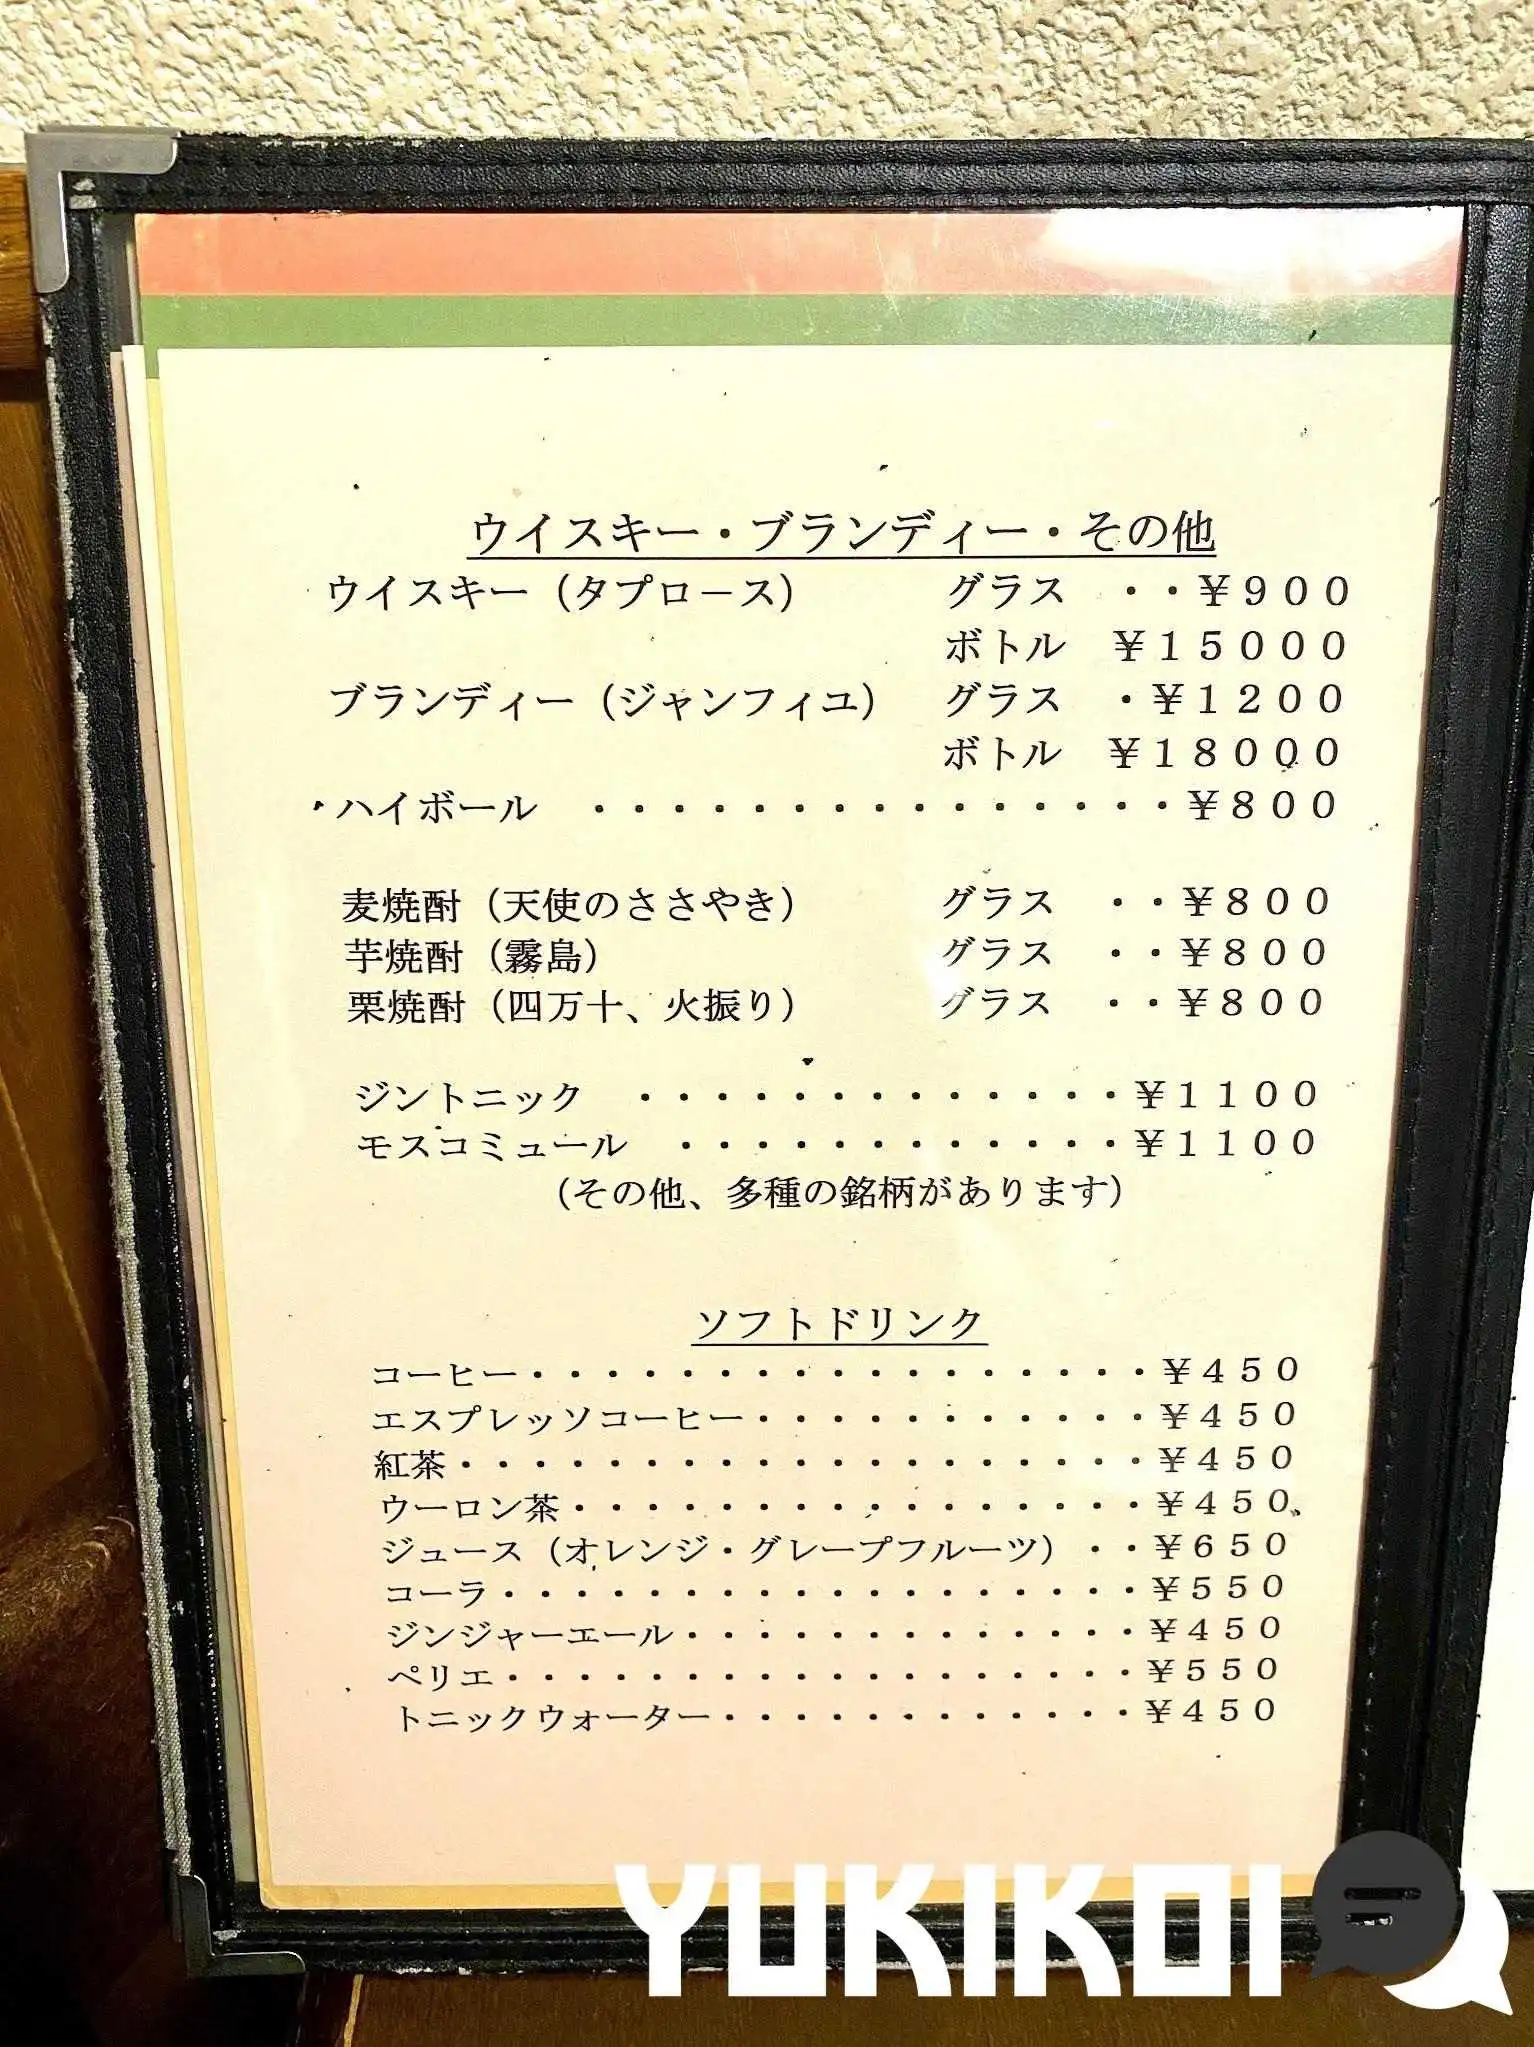 ウイスキー・ブランディー・その他
ウイスキー（タプロース） グラス ・・￥９００
ボトル ￥１５０００
ブランディー（ジャンフィユ） グラス ・￥１２００
ボトル ￥１８０００
ハイボール ・・・・・・・・・・・・・・・￥８００
麦焼酎（天使のささやき） グラス ・・￥８００
芋焼酎（霧島） グラス ・・￥８００
栗焼酎（四万十、火振り） グラス ・・￥８００
ジントニック ・・・・・・・・・・・・￥１１００
モスコミュール ・・・・・・・・・・・￥１１００
（その他、多種の銘柄があります）
ソフトドリンク
コーヒー・・・・・・・・・・・・・・・・・￥４５０
エスプレッソコーヒー・・・・・・・・・・・￥４５０
紅茶・・・・・・・・・・・・・・・・・・・￥４５０
ウーロン茶・・・・・・・・・・・・・・・・￥４５０
ジュース（オレンジ・グレープフルーツ）・・￥６５０
コーラ・・・・・・・・・・・・・・・・・・￥５５０
ジンジャーエール・・・・・・・・・・・・・￥４５０
ペリエ・・・・・・・・・・・・・・・・・・￥５５０
トニックウォーター・・・・・・・・・・・・￥４５０
YUKIKOI